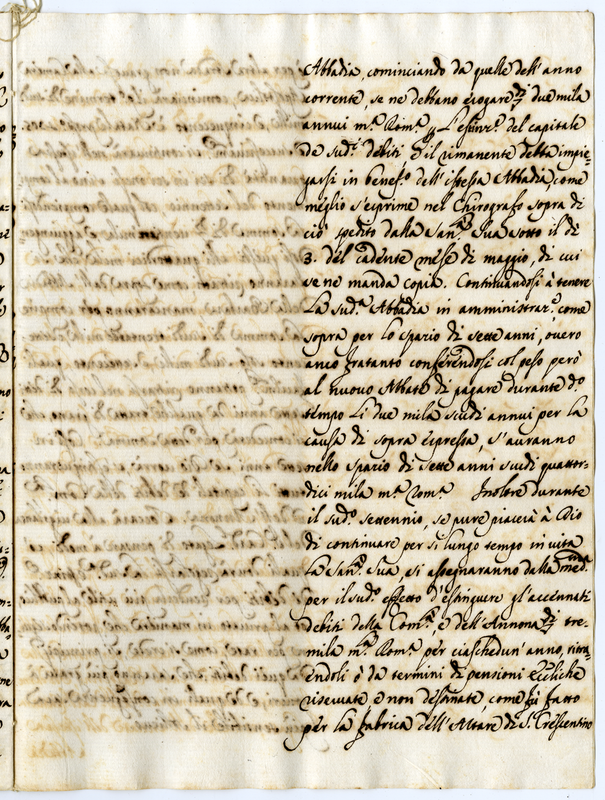 Abbadia, cominciando da quelle dell'anno
corrente, se ne debbano erogare ▽di due mila
annui m.ta Rom.a per l'estinz.e del capitale
de sud.i debiti, & il rimanente debba impie-
garsi in benef.o dell'istessa Abbadia, come
meglio s'esprime nel Chirografo sopra di
ciò spedito dalla San.tà Sua sotto il dì
3. del cadente mese di maggio, di cui
se ne manda copia. Continuandosi à tenere
La sud.a Abbadia in amministraz.e, come
sopra per lo spazio di sette anni, overo
anco fratanto conferendosi col peso però
al nuovo Abbate di pagare durante d.o
tempo li due mila scudi annui per la
causa di sopra espressa, s'auranno
nello spazio di sette anni scudi quattor-
dici mila m.ta Rom.a Inoltre durante
il sud.o settennio, se pure piacerà à Dio
di continuare per sì lungo tempo in vita
La San.tà Sua, si assegnaranno dalla med.ma
per il sud.o effetto d'estinguere gl'accennati
debiti della Com.tà, e dell'Annona ▽di tre-
mila m.ta Rom.a per ciaschedun'anno, ritra-
endoli ò da termini di pensioni eccl'iche
riservate e non destinate, come fù fatto
per la fabrica dell'Altare di S. Crescentino